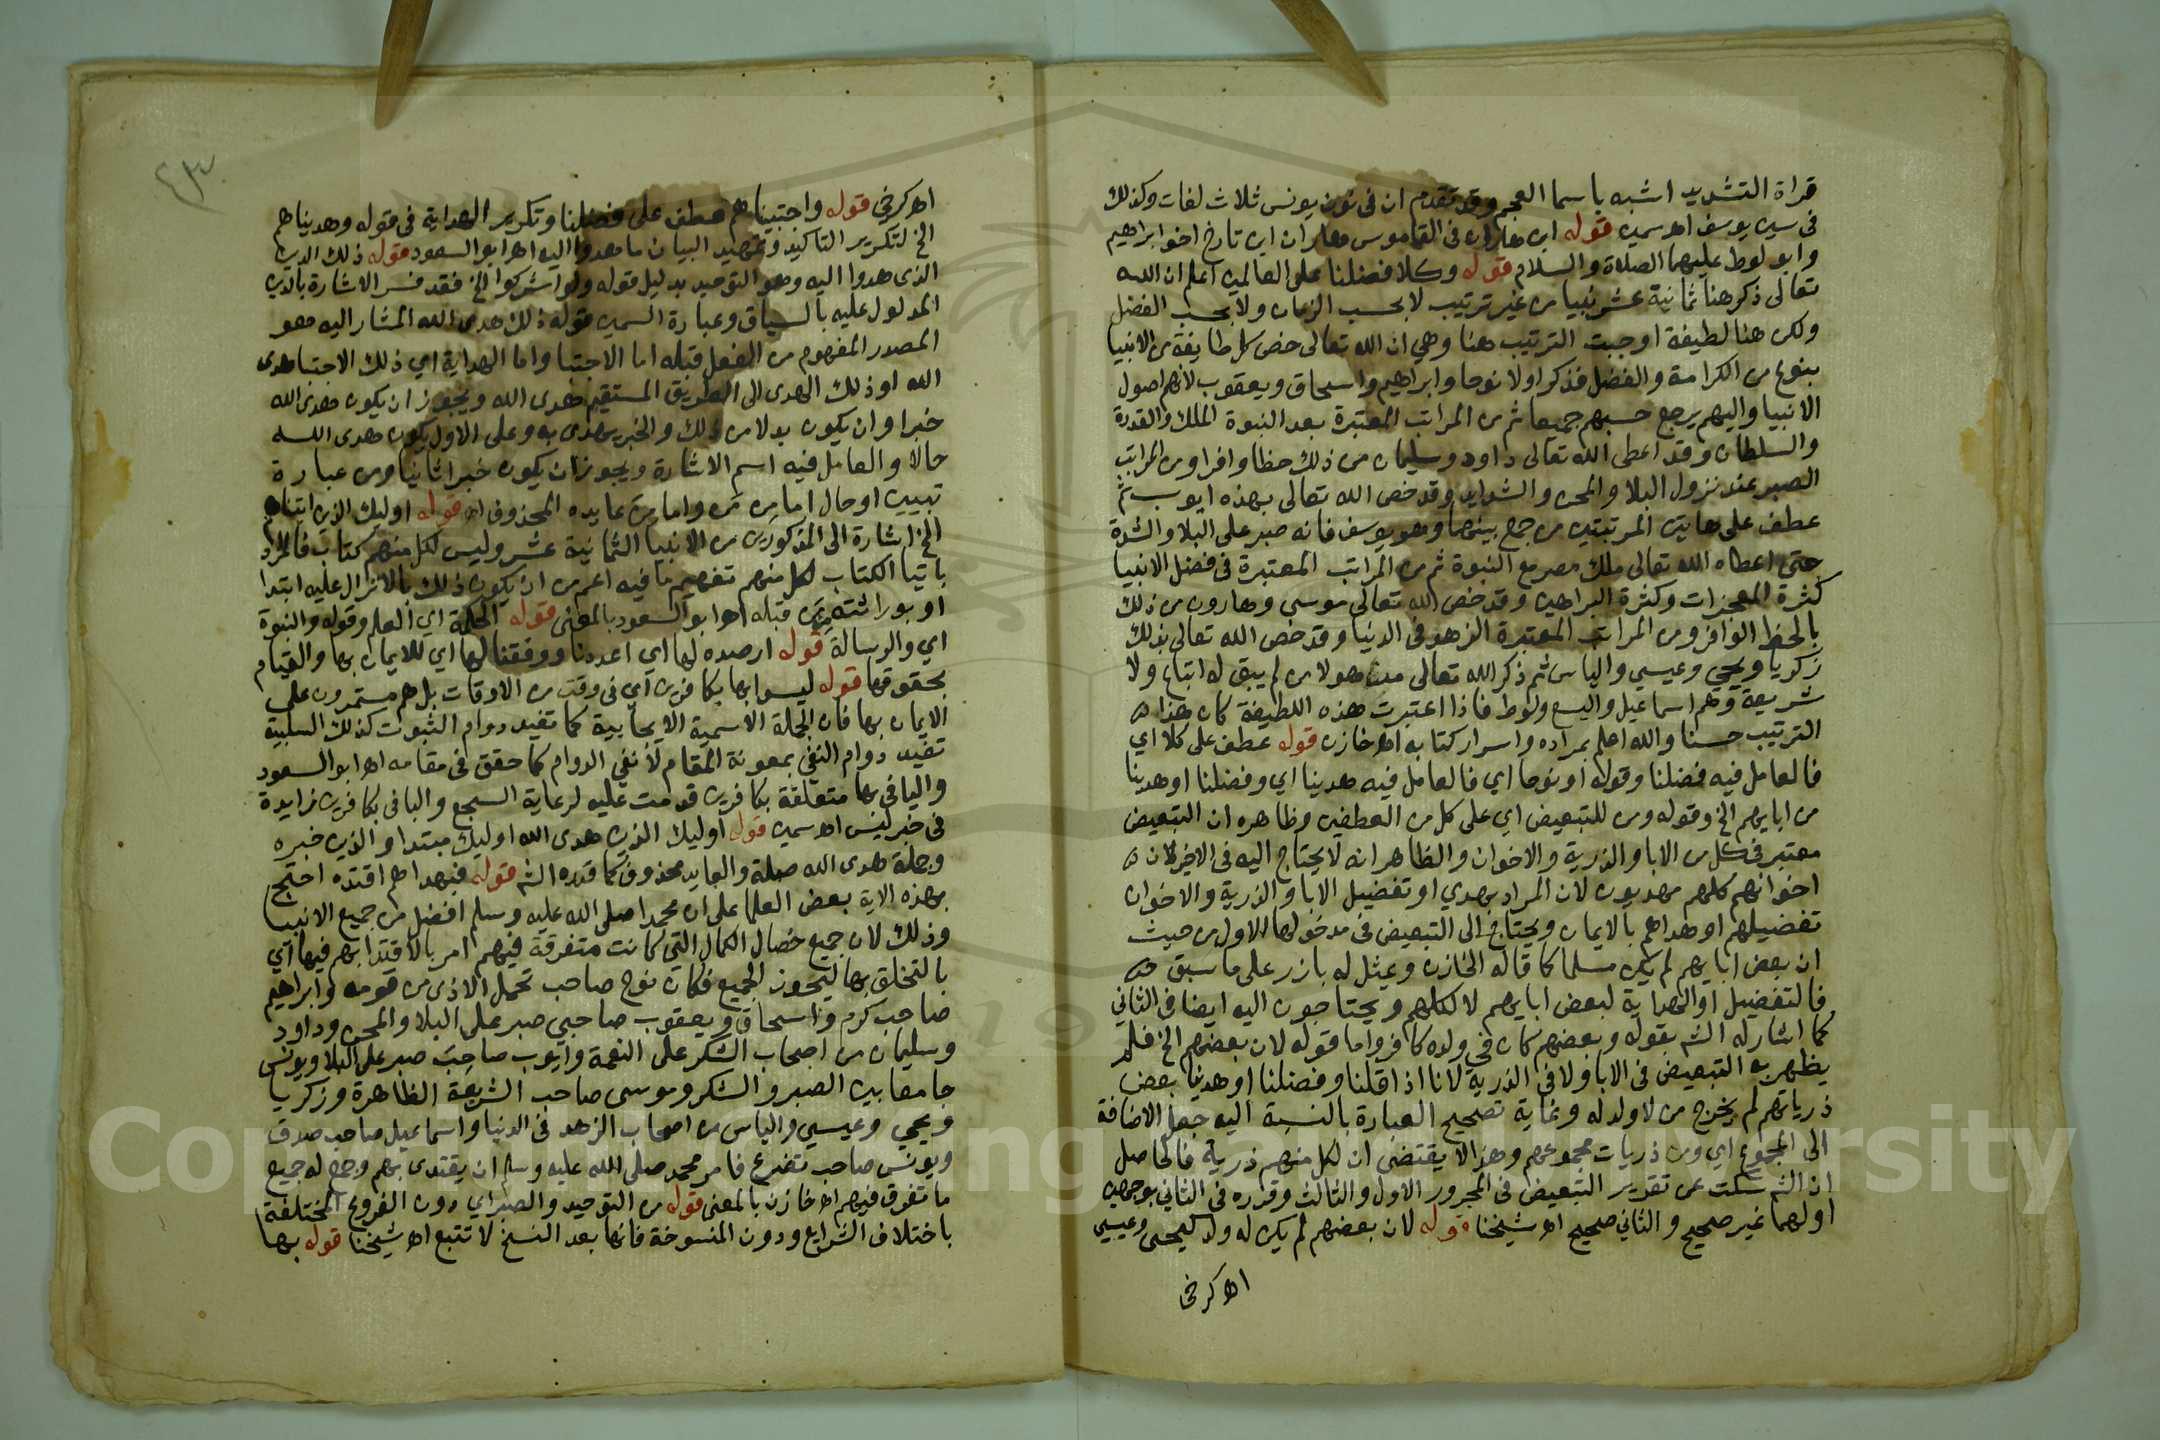 قراة التشديد اشبه باسما العجم وقد تقدم ان فى نون يونس ثلاث لغات وكذلك
فى سين يوسف اه سمين قوله ابن هاران فى القاموس هاران ابن تارخ اخو ابراهيم
وابو لوط عليهما الصلاة والسلام قوله وكلا فضلنا على العالمين اعلم ان الله
تعالى ذكر هنا ثمانية عشر نبيا من غير ترتيب لا بحسب الزمان ولا بحسب الفضل
ولكن هنا لطيفة اوجبت الترتيب هنا وهي ان الله تعالى خص كل طايفة من الانبيا
بنوع من الكرامة والفضل فذكر اولا نوحا وابراهيم واسحاق ويعقوب لانهم اصول
الانبيا واليهم يرجع حسبهم جميعا ثم من المراتب المعتبرة بعد النبوة الملك والقدرة
والسلطان وقد اعطى الله تعالى داود وسليمان من ذلك حظا وافرا ومن المراتب
الصبر عند نزول البلا والمحن والشدايد وقد خص الله تعالى بهذه ايوب ثم
عطف على هاتين المرتبتين من جمع بينهما وهو يوسف فانه صبر على البلا والشدة
حتى اعطاه الله تعالى ملك مصر مع النبوة ثم من المراتب المعتبرة فى فضل الانبيا
كثرة المعجزات وكثرة البراهين وقد خص الله تعالى موسى وهارون من ذلك
بالحظ الوافر ومن المراتب المعتبرة الزهد فى الدنيا وقد خص الله تعالى بذلك
زكريا ويحيي وعيسي والياس ثم ذكر الله تعالى من بعد هولا من لم يبق له اتباع ولا
شريعة وهم اسماعيل واليسع ولوط فاذا اعتبرت هذه اللطيفة كان هذا
الترتيب حسنا والله اعلم بمراده واسرار كتابه اه خازن قوله عطف على كلا اي
فالعامل فيه فضلنا وقوله او نوحا اي فالعامل فيه هدينا اي وفضلنا او هدينا
من ابايهم الخ وقوله ومن للتبعيض اي على كل من العطفين وظاهره ان التبعيض
معتبر فى كل من الابا والذرية والاخوان والظاهر انه لا يحتاج اليه فى الاخير لان
اخوانهم كلهم مهديون لان المراد بهدي او تفضيل الابا والذرية والاخوان
تفضيلهم او هداهم بالايمان ويحتاج الى التبعيض فى مدخولها الاول من حيث
ان بعض ابايهم لم يكن مسلما كما قاله الخازن ويمثل له بازر على ما سبق
فالتفضيل او الهداية لبعض ابايهم لا لكلهم ويحتاجون اليه ايضا فى الثاني
كما اشار له الش بقوله وبعضهم كان فى ولده كافر واما قوله لان بعضهم الخ فلم
يظهر به التبعيض فى الابا ولا فى الذرية لانا اذا قلنا وفضلنا او هدينا بعض
ذرياتهم لم يخرج من لا ولد له وغاية تصحيح العبارة بالنسبة اليه جعل الاضافة
الى المجموع اي ومن ذريات مجموعهم وهذا لا يقتضي ان لكل منهم ذرية فالحاصل
ان الش سكت عن تقدير التبعيض فى المجرور الاول والثالث وقدره فى الثاني بوجهين
اولهما غير صحيح والثاني صحيح اه شيخنا قوله لان بعضهم لم يكن له ولد كيحيى وعيسي
اه كرخى
٤٣
اه كرخى قوله واجتبيناهم عطف على فضلنا وتكرير الهداية فى قوله وهديناهم
الخ لتكرير التاكيد وتمهيد البيان ما هدوا اليه اه ابو السعود قوله ذلك الدين
الذى هدوا اليه وهو التوحيد بدليل قوله ولو اشركوا الخ فقد فسر الاشارة بالدين
المدلول عليه بالسياق وعبارة السمين قوله ذلك هدى الله المشار اليه هو
المصدر المفهوم من الفعل قبله اما الاجتبا واما الهداية اي ذلك الاجتبا هدى
الله او ذلك الهدى الى الطريق المستقيم هدى الله ويجوز ان يكون هدى الله
خبرا وان يكون بدلا من ذلك والخبر يهدى به وعلى الاول يكون هدى الله
حالا والعامل فيه اسم الاشارة ويجوز ان يكون خبرا ثانيا ومن عبارة
تبيين او حال اما من من واما من عايده المحذوف اه قوله اوليك الذين اتيناهم
الخ اشارة الى المذكورين من الانبيا الثمانية عشر وليس لكل منهم كتاب فالمراد
باتيا الكتاب لكل منهم تفهيم ما فيه اعم من ان يكون ذلك بالانزال عليه ابتدا
او بوراثته من قبله اه ابو السعود بالمعنى قوله الحكمة اي العلم وقوله والنبوة
اي والرسالة قوله ارصده لها اى اعددنا ووفقنا لها اي للايمان بها والقيام
بحقوقها قوله ليسوا بها بكافرين اي فى وقت من الاوقات بل هم مستمرون على
الايمان بها فان الجملة الاسمية الايجابية كما تفيد دوام الثبوت كذلك السلبية
تفيد دوام النفي بمعونة المقام لا نفي الدوام كما حقق فى مقامه اه ابو السعود
والبا فى بها متعلقة بكافرين قدمت عليه لرعاية السجع والبا فى بكافرين زايدة
فى خبر ليس اه سمين قوله اوليك الذين هدى الله اوليك مبتدا والذين خبره
وجملة هدى الله صلة والعايد محذوف كما قدره الش قوله فبهداهم اقتده احتج
بهذه الاية بعض العلما على ان محمدا صلى الله عليه وسلم افضل من جميع الانبيا
وذلك لان جميع خصال الكمال التي كانت متفرقة فيهم امر بالاقتدا بهم فيها اي
بالتخلق بها ليحوز الجميع فكان نوح صاحب تحمل الاذى من قومه وابراهيم
صاحب كرم واسحاق ويعقوب صاحبي صبر على البلا والمحن وداود
وسليمان من اصحاب الشكر على النعمة وايوب صاحب صبر على البلا ويونس
جامعا بين الصبر والشكر وموسى صاحب الشريعة الظاهرة وزكريا
ويحيي وعيسي والياس من اصحاب الزهد فى الدنيا واسماعيل صاحب صدق
ويونس صاحب تضرع فامر محمد صلى الله عليه وسلم ان يقتدى بهم وجمع له جميع
ما تفرق فيهم اه خازن بالمعنى قوله من التوحيد والصبر اي دون الفروع المختلفة
باختلاف الشرايع ودون المنسوخة فانها بعد النسخ لا تتبع اه شيخنا قوله بها